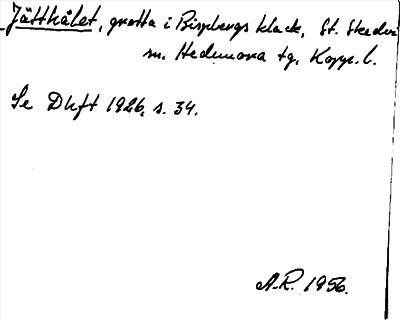 Jätthålet, grotta i Bispbergs klack, St. Skedvi
sn. Hedemora tg, Kopp. l.
Se Dhft 1926, s. 34.
A.R. 1956.